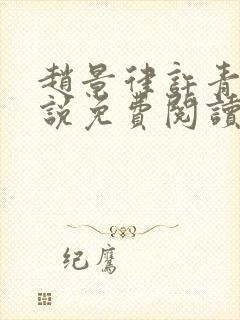 趙景律許青
說免費閱讀
纪鷹